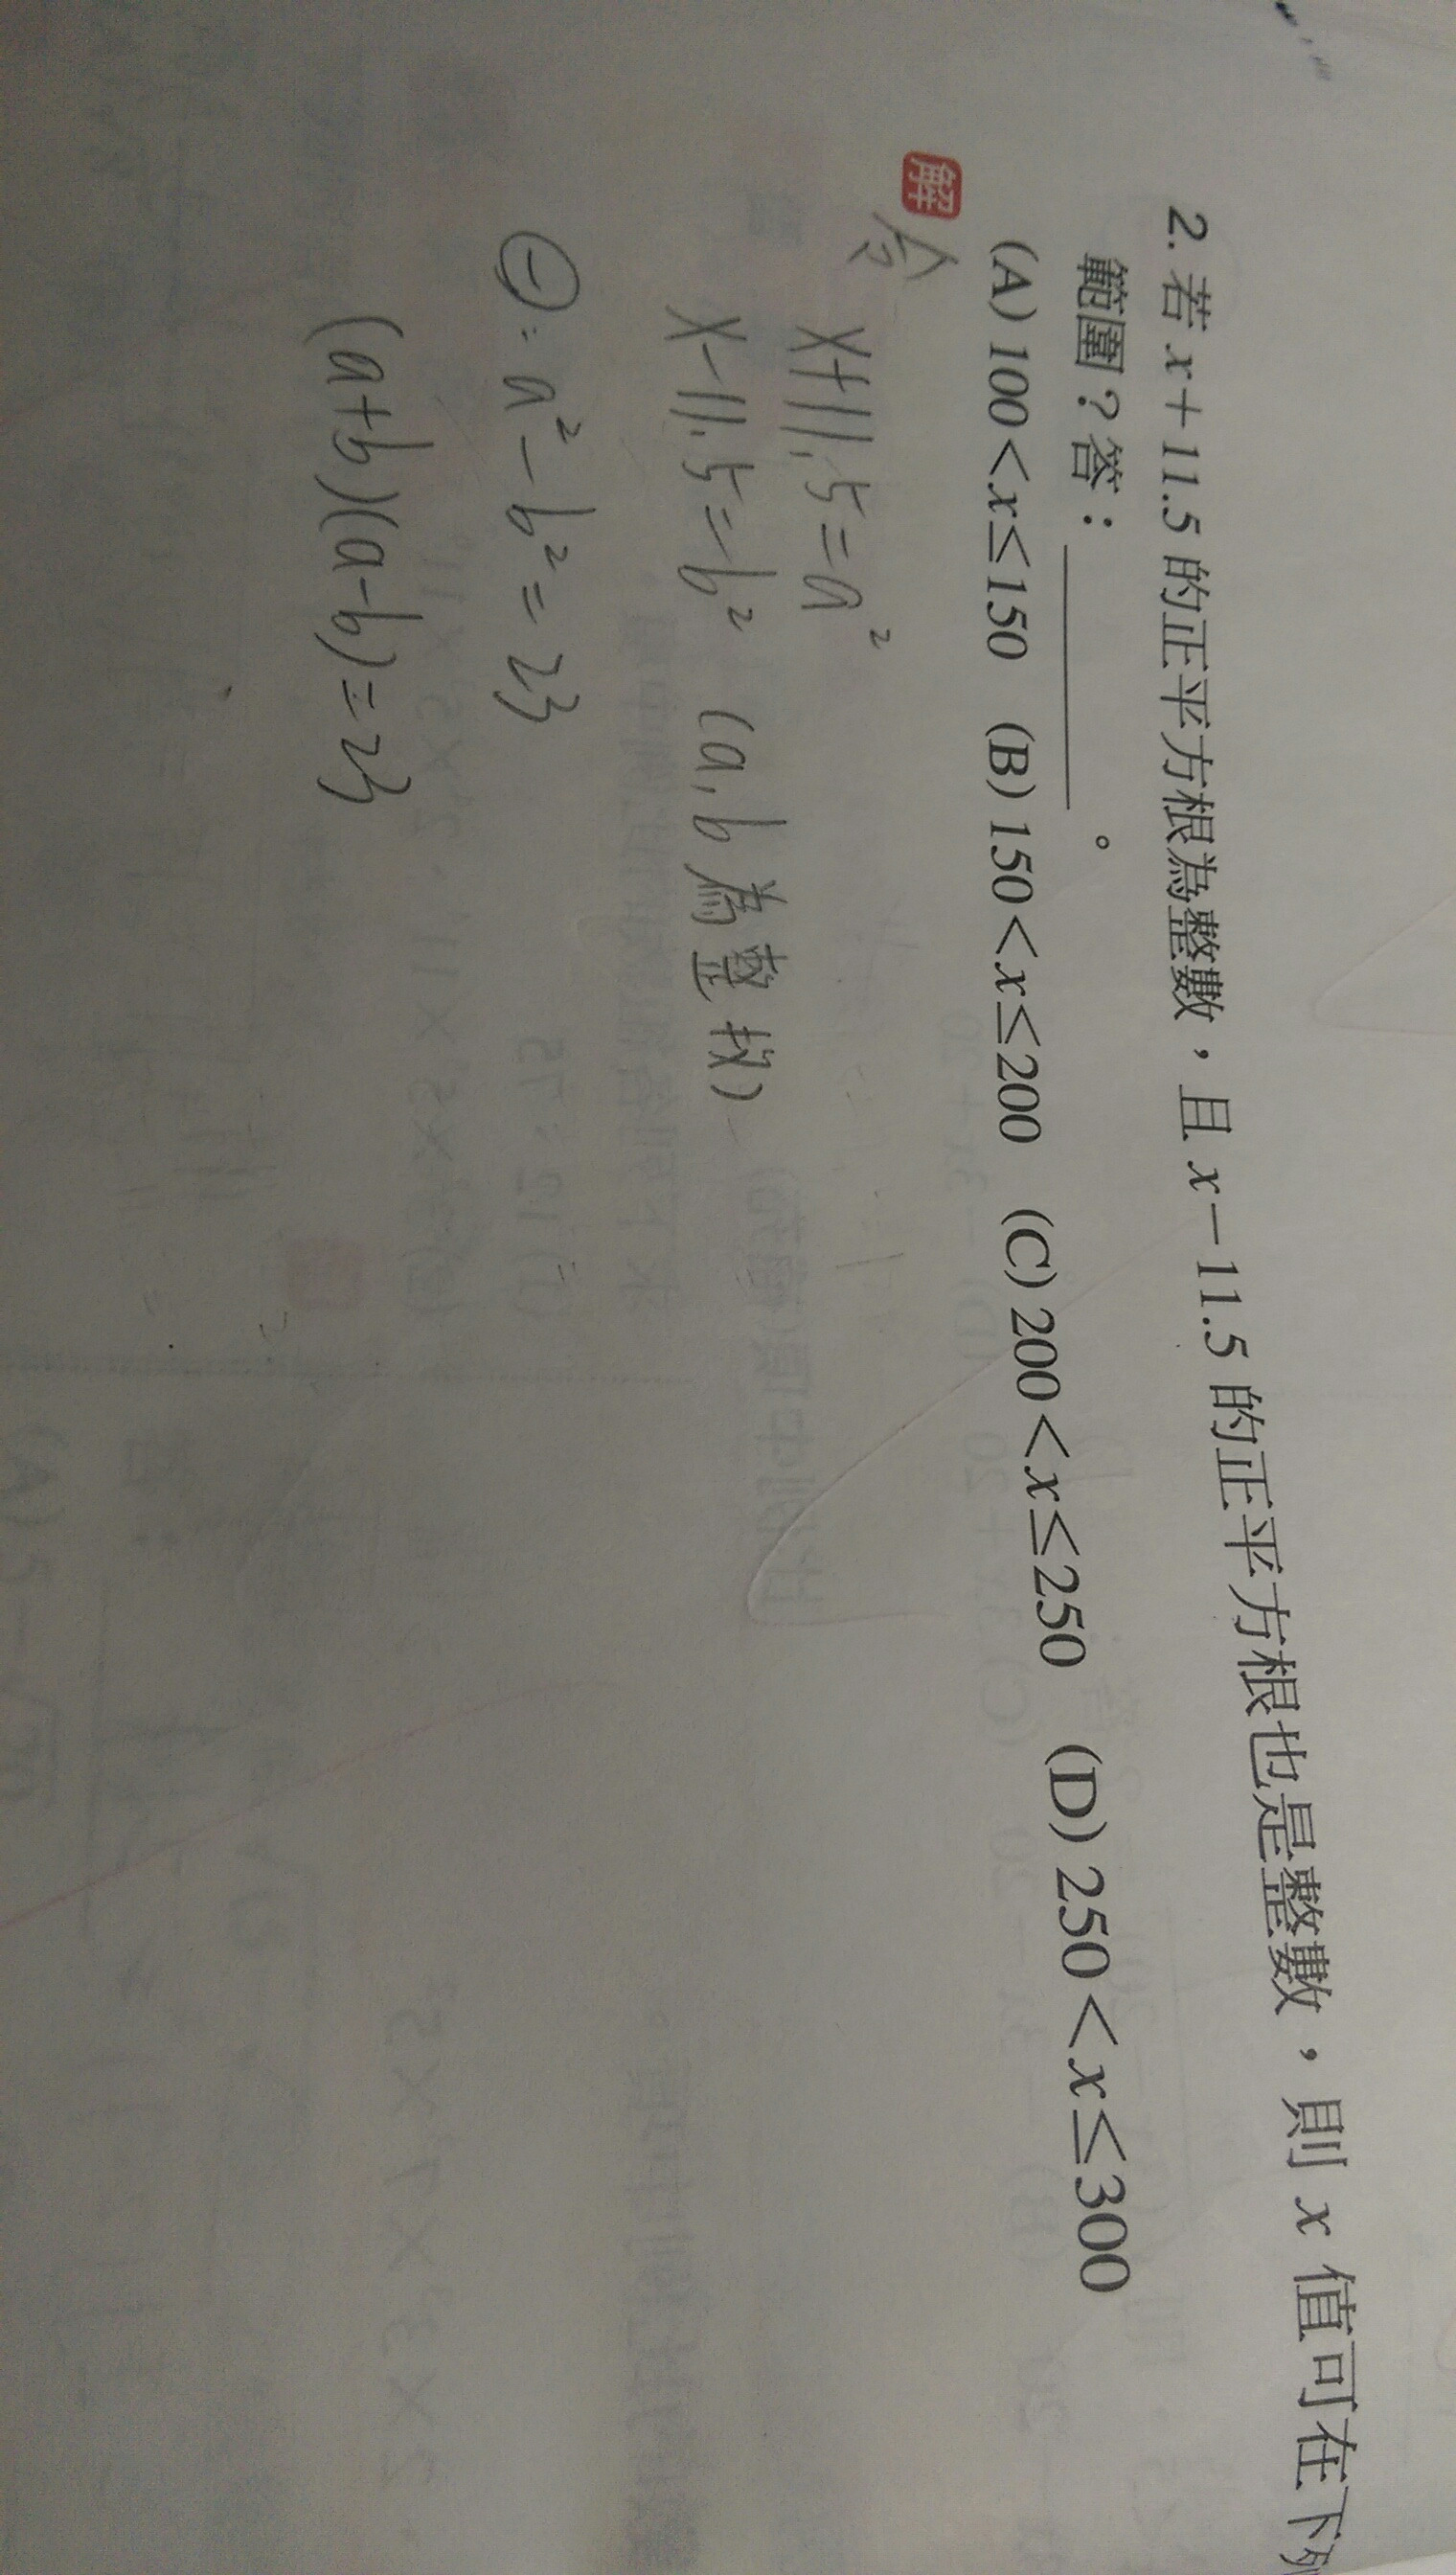 2. 若 x＋11.5 的正平方根為整數，且 x－11.5 的正平方根也是整數，則 x 值可在下列
範圍？答：＿＿＿＿。
(A) 100＜x≤150 (B) 150＜x≤200 (C) 200＜x≤250 (D) 250＜x≤300
解 令 x+11.5=a²
x-11.5=b² (a,b為整找)
⊖: a²-b²=23
(a+b)(a-b)=23